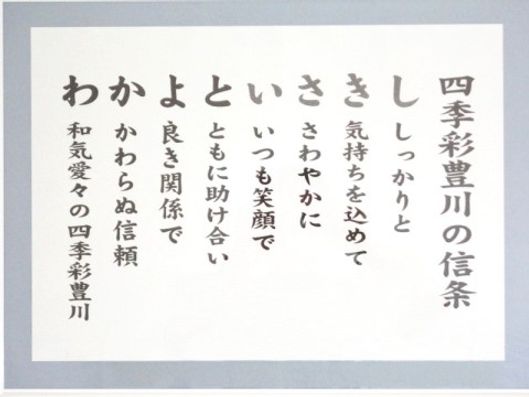 四季彩豊川の信条
し しっかりと
き 気持ちを込めて
さ さわやかに
い いつも笑顔で
と ともに助け合い
よ 良き関係で
か かわらぬ信頼
わ 和気愛々の四季彩豊川